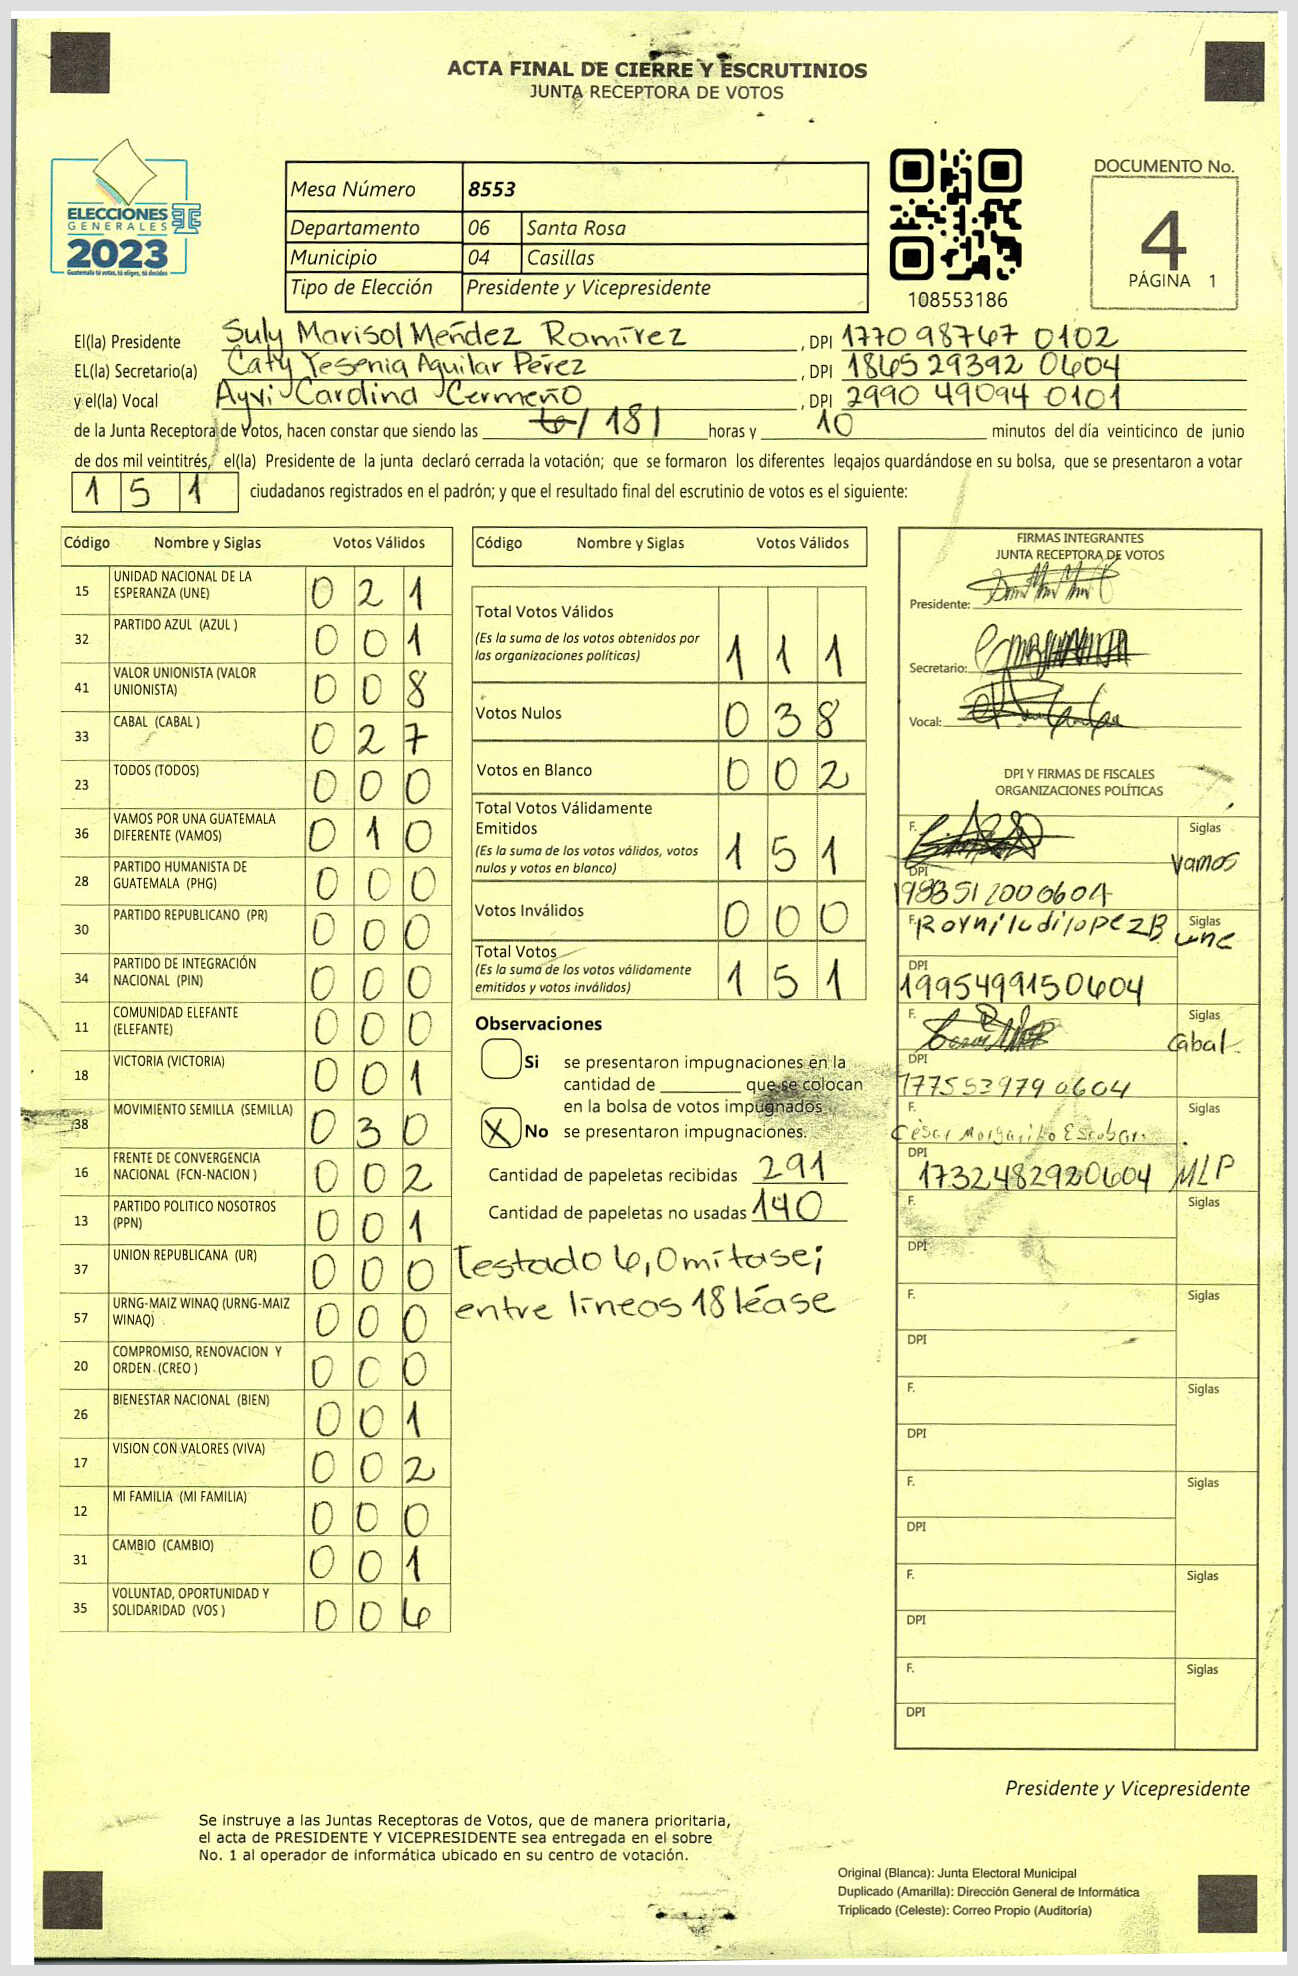 ACTA FINAL DE CIERRE Y ESCRUTINIOS
JUNTA RECEPTORA DE VOTOS
ELECCIONES
GENERALES
2023
Guatemala tú votas, tú eliges, tú decides
Mesa Número 8553
Departamento 06 Santa Rosa
Municipio 04 Casillas
Tipo de Elección Presidente y Vicepresidente
108553186
DOCUMENTO No.
4
PÁGINA 1
El(la) Presidente Suly Marisol Mendez Ramírez, DPI 1770 98767 0102
EL(la) Secretario(a) Caty Yesenia Aguilar Pérez, DPI 1865 29392 0604
y el(la) Vocal Ayvi Carolina Cermeño, DPI 2990 49094 0101
de la Junta Receptora de Votos, hacen constar que siendo las 6/18/ horas y 10 minutos del día veinticinco de junio
de dos mil veintitrés, el(la) Presidente de la junta declaró cerrada la votación; que se formaron los diferentes legajos guardándose en su bolsa, que se presentaron a votar
1 5 1 ciudadanos registrados en el padrón; y que el resultado final del escrutinio de votos es el siguiente:
Código Nombre y Siglas Votos Válidos
15 UNIDAD NACIONAL DE LA ESPERANZA (UNE) 0 2 1
32 PARTIDO AZUL (AZUL ) 0 0 1
41 VALOR UNIONISTA (VALOR UNIONISTA) 0 0 8
33 CABAL (CABAL ) 0 2 7
23 TODOS (TODOS) 0 0 0
36 VAMOS POR UNA GUATEMALA DIFERENTE (VAMOS) 0 1 0
28 PARTIDO HUMANISTA DE GUATEMALA (PHG) 0 0 0
30 PARTIDO REPUBLICANO (PR) 0 0 0
34 PARTIDO DE INTEGRACIÓN NACIONAL (PIN) 0 0 0
11 COMUNIDAD ELEFANTE (ELEFANTE) 0 0 0
18 VICTORIA (VICTORIA) 0 0 1
38 MOVIMIENTO SEMILLA (SEMILLA) 0 3 0
16 FRENTE DE CONVERGENCIA NACIONAL (FCN-NACION ) 0 0 2
13 PARTIDO POLITICO NOSOTROS (PPN) 0 0 1
37 UNION REPUBLICANA (UR) 0 0 0
57 URNG-MAIZ WINAQ (URNG-MAIZ WINAQ) 0 0 0
20 COMPROMISO, RENOVACION Y ORDEN (CREO ) 0 0 0
26 BIENESTAR NACIONAL (BIEN) 0 0 1
17 VISION CON VALORES (VIVA) 0 0 2
12 MI FAMILIA (MI FAMILIA) 0 0 0
31 CAMBIO (CAMBIO) 0 0 1
35 VOLUNTAD, OPORTUNIDAD Y SOLIDARIDAD (VOS ) 0 0 6
Código Nombre y Siglas Votos Válidos
Total Votos Válidos
(Es la suma de los votos obtenidos por
las organizaciones políticas) 1 1 1
Votos Nulos 0 3 8
Votos en Blanco 0 0 2
Total Votos Válidamente
Emitidos
(Es la suma de los votos válidos, votos
nulos y votos en blanco) 1 5 1
Votos Inválidos 0 0 0
Total Votos
(Es la suma de los votos válidamente
emitidos y votos inválidos) 1 5 1
Observaciones
Si se presentaron impugnaciones en la
cantidad de ________ que se colocan
en la bolsa de votos impugnados
X No se presentaron impugnaciones.
Cantidad de papeletas recibidas 291
Cantidad de papeletas no usadas 140
Testado 6, Omitase;
entre líneas 18 léase
FIRMAS INTEGRANTES
JUNTA RECEPTORA DE VOTOS
Presidente:
Secretario:
Vocal:
DPI Y FIRMAS DE FISCALES
ORGANIZACIONES POLÍTICAS
F. Siglas
Vamos
DPI
1983512000604
F. Royniludilopez B Siglas
une
DPI
1995499150604
F. Siglas
Cabal
DPI
1775539790604
F. Siglas
César Margarito Escobar
DPI
1732482920604 MLP
F. Siglas
DPI
F. Siglas
DPI
F. Siglas
DPI
F. Siglas
DPI
F. Siglas
DPI
F. Siglas
DPI
Presidente y Vicepresidente
Se instruye a las Juntas Receptoras de Votos, que de manera prioritaria,
el acta de PRESIDENTE Y VICEPRESIDENTE sea entregada en el sobre
No. 1 al operador de informática ubicado en su centro de votación.
Original (Blanca): Junta Electoral Municipal
Duplicado (Amarilla): Dirección General de Informática
Triplicado (Celeste): Correo Propio (Auditoría)